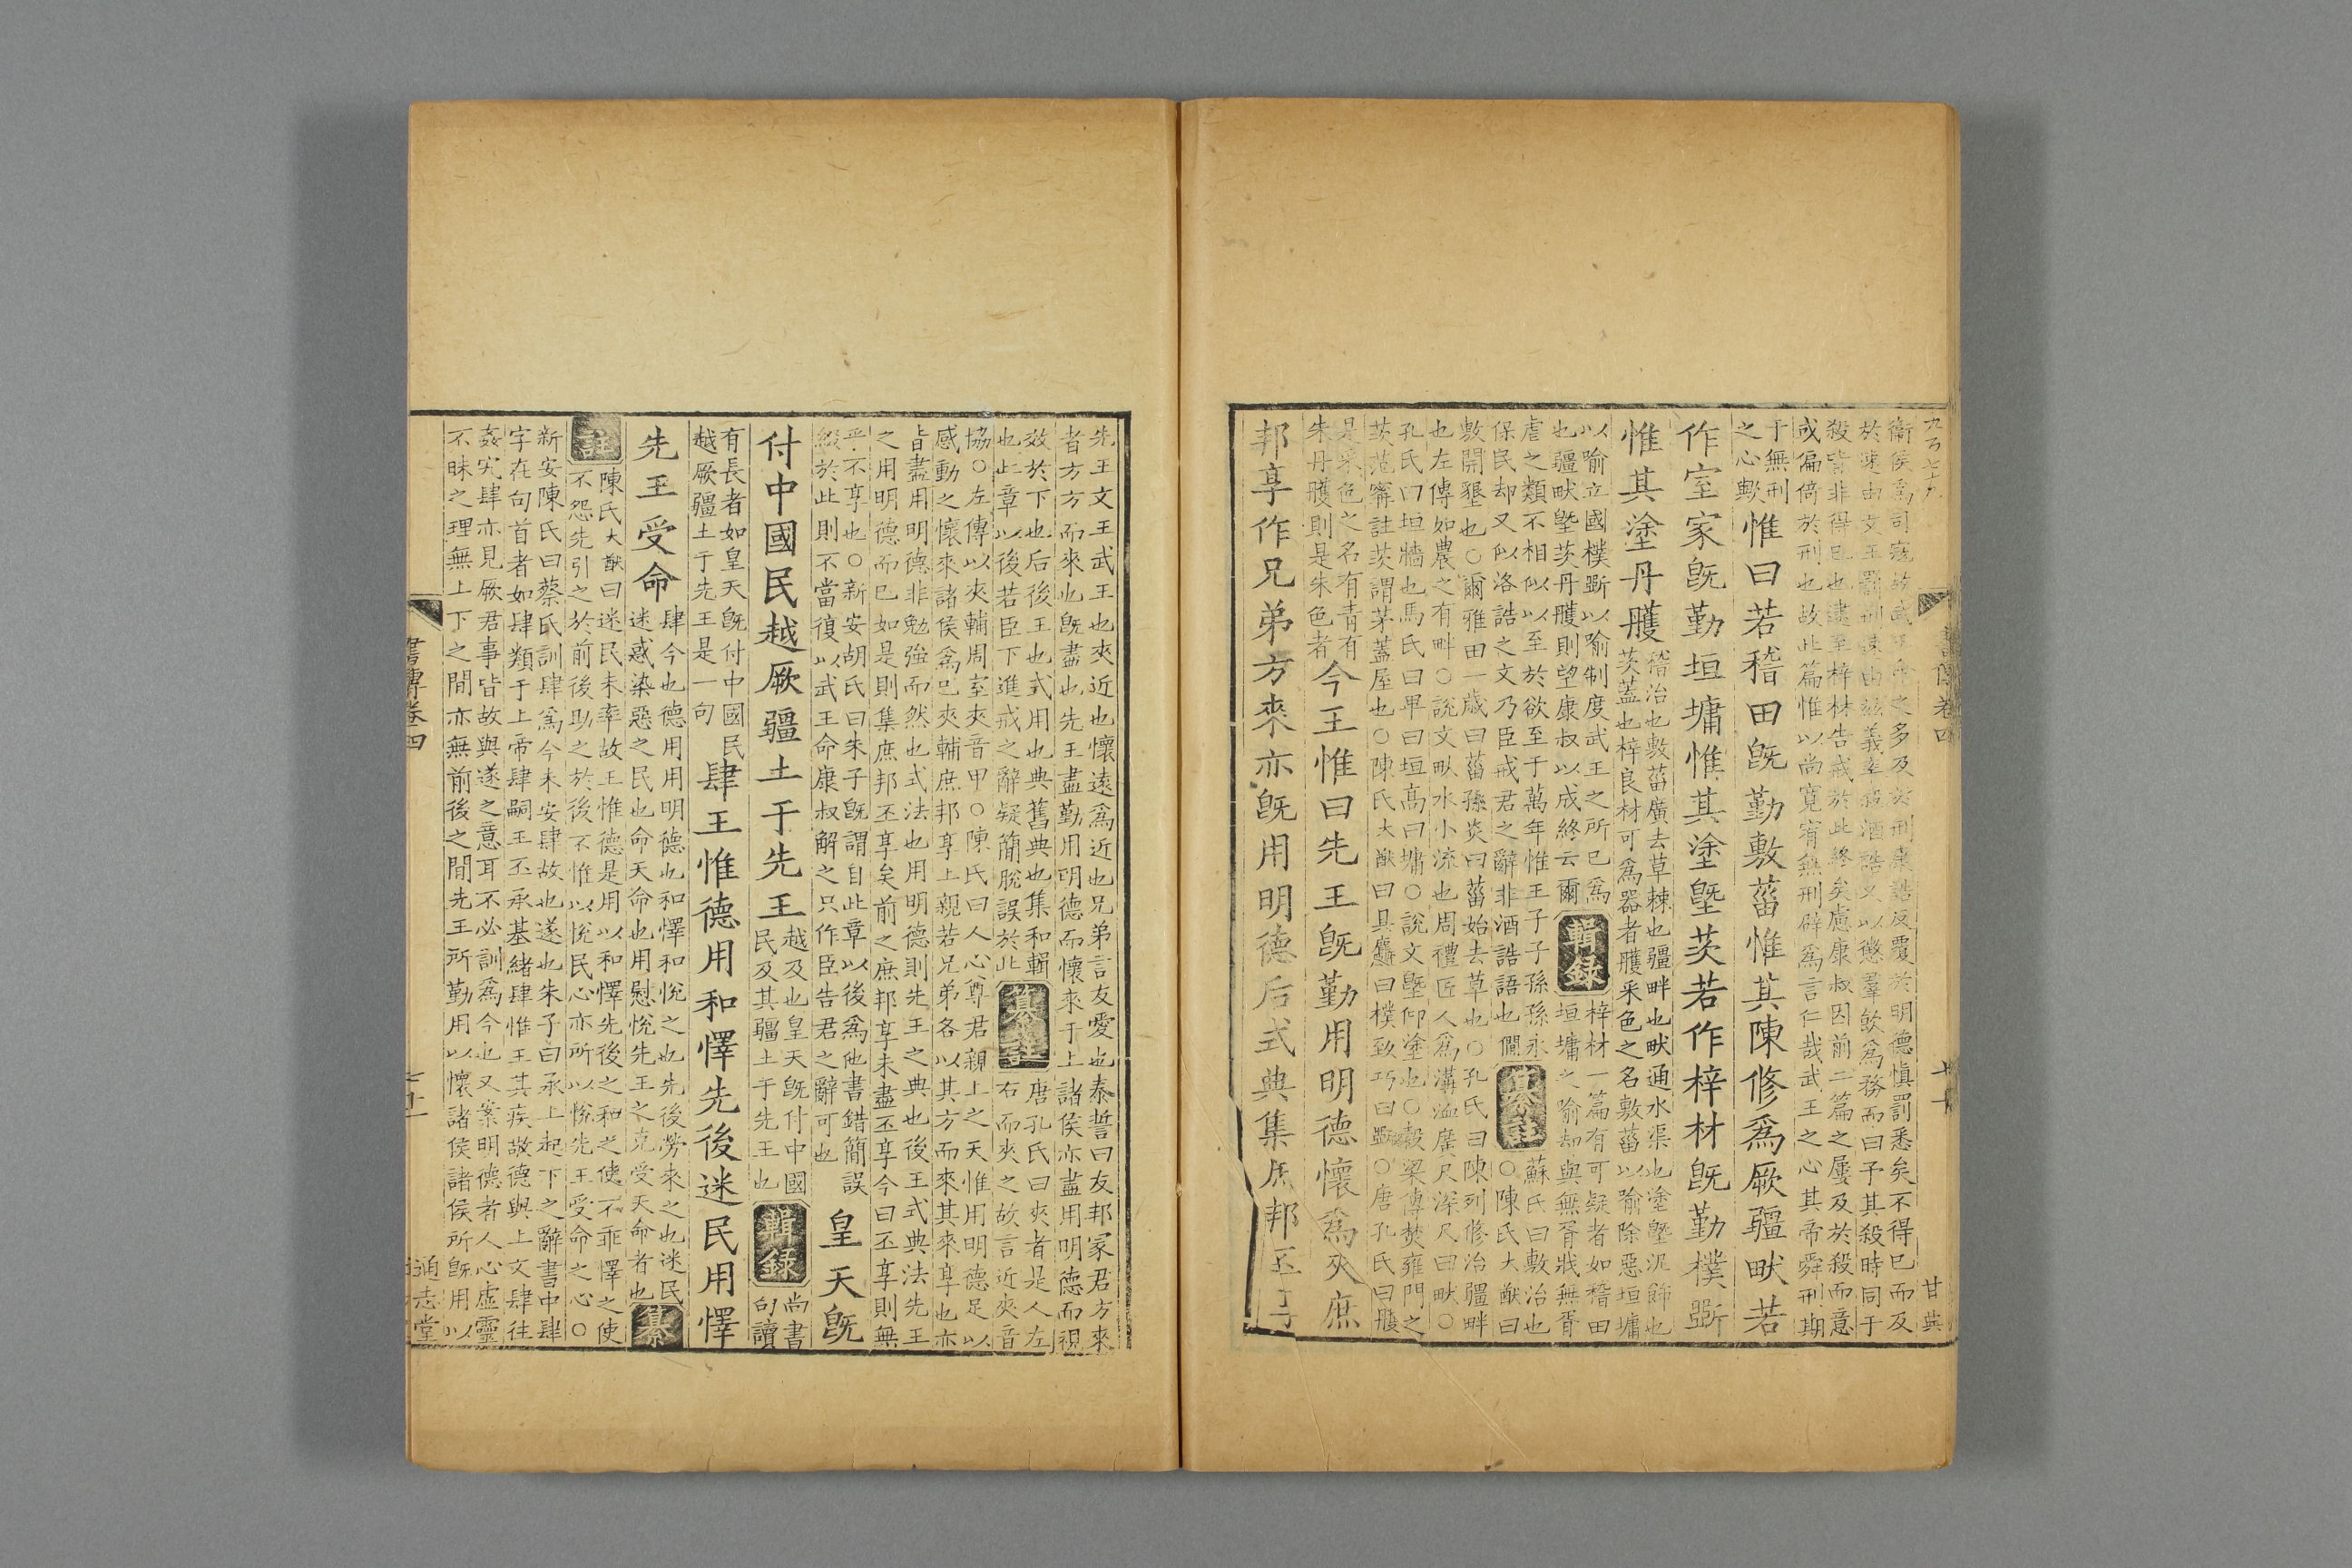 衞侯爲司寇故或刑之多及於刑康誥反覆於明德愼罰悉矣不得已而及
於速由文王罰刑速由兹義率殺酒誥又以懲羣飲爲務而曰予其殺時同于
殺皆非得已也逮至梓材告戒於此終矣慮康叔因前二篇之屢及於殺而意
或偏倚於刑也故此篇惟以尚寛宥無刑辟爲言仁哉武王之心其帝舜刑期
于無刑
之心歟
惟曰若稽田旣勤敷菑惟其陳修爲厥疆畎若
作室家旣勤垣墉惟其塗墍茨若作梓材旣勤樸斲
惟其塗丹雘
稽治也敷菑廣去草棘也疆畔也畎通水渠也塗墍泥飾也
茨蓋也梓良材可爲器者雘采色之名敷菑以喻除惡垣墉
以喻立國樸斲以喻制度武王之所已爲
也疆畎墍茨丹雘則望康叔以成終云爾
輯録
梓材一篇有可疑者如稽田
垣墉之喻却與無胥戕無胥
虐之類不相似以至於欲至于萬年惟王子子孫孫永
保民却又似洛誥之文乃臣戒君之辭非酒誥語也僴
纂註
蘇氏曰敷治也
○陳氏大猷曰
敷開墾也○爾雅田一歲曰菑孫炎曰菑始去草也○孔氏曰陳列修治疆畔
也左傳如農之有畔○說文畎水小流也周禮匠人爲溝洫廣尺深尺曰畎○
孔氏曰垣牆也馬氏曰卑曰垣高曰墉○說文墍仰塗也○穀梁傳焚雍門之
茨范甯註茨謂茅蓋屋也○陳氏大猷曰具麤曰樸致巧曰斲○唐孔氏曰雘
是采色之名有青有
朱丹雘則是朱色者
今王惟曰先王旣勤用明德懷爲夾庶
邦享作兄弟方來亦旣用明德后式典集庶邦丕享
先王文王武王也夾近也懷遠爲近也兄弟言友愛也泰誓曰友邦冢君方來
者方方而來也旣盡也先王盡勤用明德而懷來于上諸侯亦盡用明德而視
效於下也后後王也式用也典舊典也集和輯
也此章以後若臣下進戒之辭疑簡脫誤於此
纂註
唐孔氏曰夾者是人左
右而夾之故言近夾音
協○左傳以夾輔周室夾音甲○陳氏曰人心尊君親上之天惟用明德足以
感動之懷來諸侯爲已夾輔庶邦享上親若兄弟各以其方而來其來享也亦
皆盡用明德非勉強而然也式法也用明德則先王之典也後王式典法先王
之用明德而已如是則集庶邦丕享矣前之庶邦享未盡丕享今曰丕享則無
乎不享也○新安胡氏曰朱子旣謂自此章以後爲他書錯簡誤
綴於此則不當復以武王命康叔解之只作臣告君之辭可也
皇天旣
付中國民越厥疆土于先王
越及也皇天旣付中國
民及其疆土于先王也
輯録
尚書
句讀
有長者如皇天旣付中國民
越厥疆土于先王是一句
肆王惟德用和懌先後迷民用懌
先王受命
肆今也德用用明德也和懌和悅之也先後勞來之也迷民
迷惑染惡之民也命天命也用慰悅先王之克受天命者也
纂
註
陳氏大猷曰迷民未率故王惟德是用以和懌先後之和之使不乖懌之使
不怨先引之於前後助之於後不惟以悅民心亦所以悅先王受命之心○
新安陳氏曰蔡氏訓肆爲今未安肆故也遂也朱子曰承上起下之辭書中肆
字在句首者如肆類于上帝肆嗣王丕承基緒肆惟王其疾敬德與上文肆往
姦宄肆亦見厥君事皆故與遂之意耳不必訓爲今也又案明德者人心虛靈
不昧之理無上下之間亦無前後之間先王所勤用以懷諸侯諸侯所旣用以
書傳卷四
通志堂